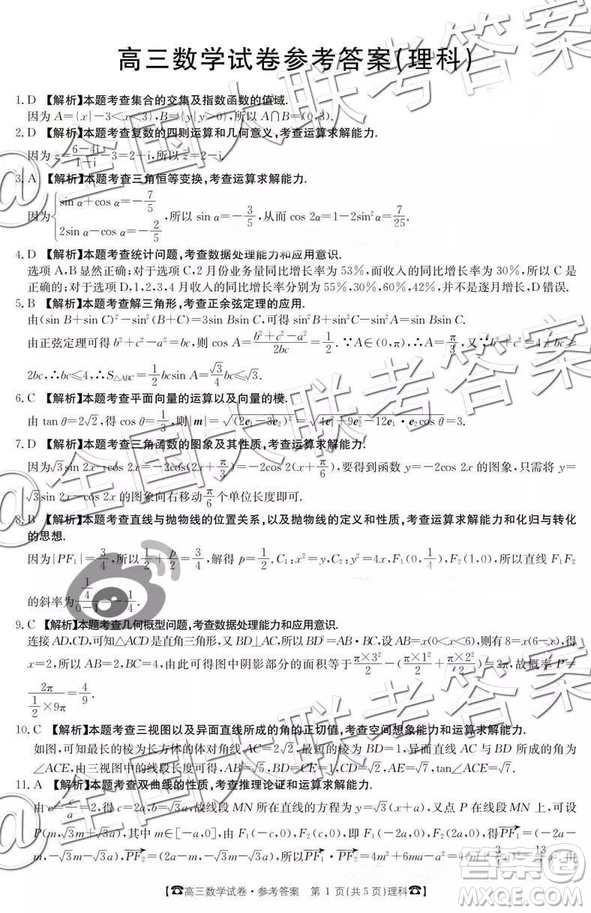 高三数学试卷参考答案(理科)
1. D 【解析】本题考查集合的交集及指数函数的值域.
因为 A={x|-3<x<3}, B={y|y>0}, 所以 A∩B=(0,3).
2. D 【解析】本题考查复数的四则运算和几何意义,考查运算求解能力.
因为 z̄=(6-4i)/(1+i)-3=2-i, 所以 z=2-i.
3. A 【解析】本题考查三角恒等变换,考查运算求解能力.
因为{sin α+cos α=-7/5, 2sin α-cos α=-2/5, 所以 sin α=-3/5, 从而 cos 2α=1-2sin²α=7/25.
4. D 【解析】本题考查统计问题,考查数据处理能力和应用意识.
选项 A,B 显然正确;对于选项 C,2月份业务量同比增长率为 53%,而收入的同比增长率为 30%,所以 C
是正确的;对于选项 D,1,2,3,4月收入的同比增长率分别为 55%,30%,60%,42%,并不逐月增长,D错误.
5. B 【解析】本题考查解三角形,考查正余弦定理的应用.
由(sin B+sin C)²-sin²(B+C)=3sin Bsin C, 可得 sin²B+sin²C-sin²A=sin Bsin C.
由正弦定理可得 b²+c²-a²=bc, 则 cos A=(b²+c²-a²)/2bc=1/2. ∵A∈(0,π), ∴A=π/3. 又 ∵b²+c²=4+a²=4+
2bc, ∴bc=4, ∴S△ABC=1/2 bcsin A=√3.
6. C 【解析】本题考查平面向量的运算以及向量的模.
由 tan θ=2√2, 得 cos θ=1/3, 则|m|=√(2e₁-3e₂)²=√4e₁²+9e₂²-12e₁·e₂=3.
7. D 【解析】本题考查三角函数的图象及其性质,考查运算求解能力.
因为 √3sin 2x-cos 2x=-2cos(2x+π/3)=-2cos 2(x+π/6), 要得到函数 y=-2cos 2x 的图象,只需将 y=
√3sin 2x-cos 2x 的图象向右移动 π/6 个单位长度即可.
8. B 【解析】本题考查直线与抛物线的位置关系,以及抛物线的定义和性质,考查运算求解能力和化归与转化
的思想.
因为|PF₁|=3/4, 所以 1/2+p/2=3/4, 解得 p=1/2. C₁:x²=y, C₂:y²=4x, F₁(0,1/4), F₂(1,0), 所以直线F₁F₂
的斜率为 (1/4)/(0-1)=-1/4.
9. C 【解析】本题考查几何概型问题,考查数据处理能力和应用意识.
连接 AD,CD,可知△ACD 是直角三角形,又 BD⊥AC,所以 BD²=AB·BC,设 AB=x(0<x<6),则有 8=x(6-x),得
x=2,所以 AB=2,BC=4,由此可得图中阴影部分的面积等于 π×3²/2-(π×1²/2+π×2²/2)=2π,故概率 P=
2π/(1/2×9π)=4/9.
10. C 【解析】本题考查三视图以及异面直线所成的角的正切值,考查空间想象能力和运算求解能力.
如图,可知最长的棱为长方体的体对角线 AC=2√2,最短的棱为 BD=1,异面直线 AC 与 BD 所成的角为
∠ACE,由三视图中的线段长度可得,AB=√5,BD=CE=1,CD=√2,AE=√7,tan∠ACE=√7.
11. A 【解析】本题考查双曲线的性质,考查推理论证和运算求解能力.
由 e=c/a=2, 得 c=2a, b=√3a, 故线段 MN 所在直线的方程为 y=√3(x+a), 又点 P 在线段 MN 上,可设
P(m,√3m+√3a), 其中 m∈[-a,0], 由 F₁(-c,0), F₂(c,0), 即 F₁(-2a,0), F₂(2a,0), 得PF₁=(-2a-
m,-√3m-√3a), PF₂=(2a-m,-√3m-√3a), 所以PF₁·PF₂=4m²+6ma-a²=4(m+3/4a)²-13/4
高三数学试卷·参考答案 第 1 页(共 5 页)理科